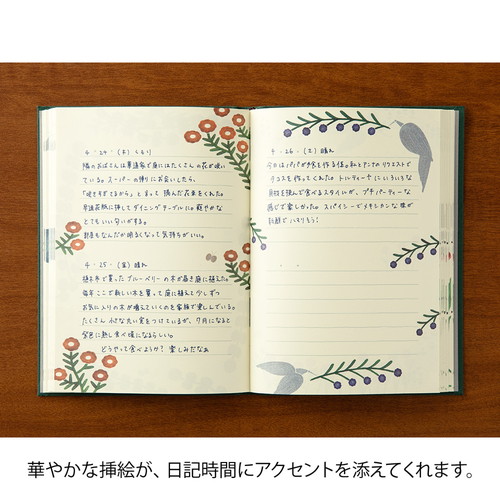 4・24・(木) くもり
隣のおばさんは園芸家で庭にはたくさんの花が咲い
ている。スーパーの帰りにお会いしたら、
「咲きすぎてるから」と言って摘んだ花をくれた。
早速花瓶に挿してダイニングテーブルに。鮮やかな
とてもいい匂いがする。
部屋もなんだか明るくなって気持ちがいい。
4・25・(金) 晴れ
植木市で買ったブルーベリーの木が届き庭に植えた。
毎年ここで新しい木を買って庭に植えて少しずつ
お気に入りの木が増えていくのを家族で楽しんでいる。
たくさん小さな丸い実をつけているが、7月になると
紫色に熟し食べ頃になるらしい。
どうやって食べようか? 楽しみだなぁ
4・26・(土) 晴れ
今日はパパが夕食を作る係。私とケンタのリクエストで
タコスを作ってくれた。トルティーヤにいろいろな
具材を挟んで食べるスタイルが、プチパーティーな
感じで楽しかった。スパイシーでメキシカンな味が
新鮮でハマりそう!
華やかな挿絵が、日記時間にアクセントを添えてくれます。